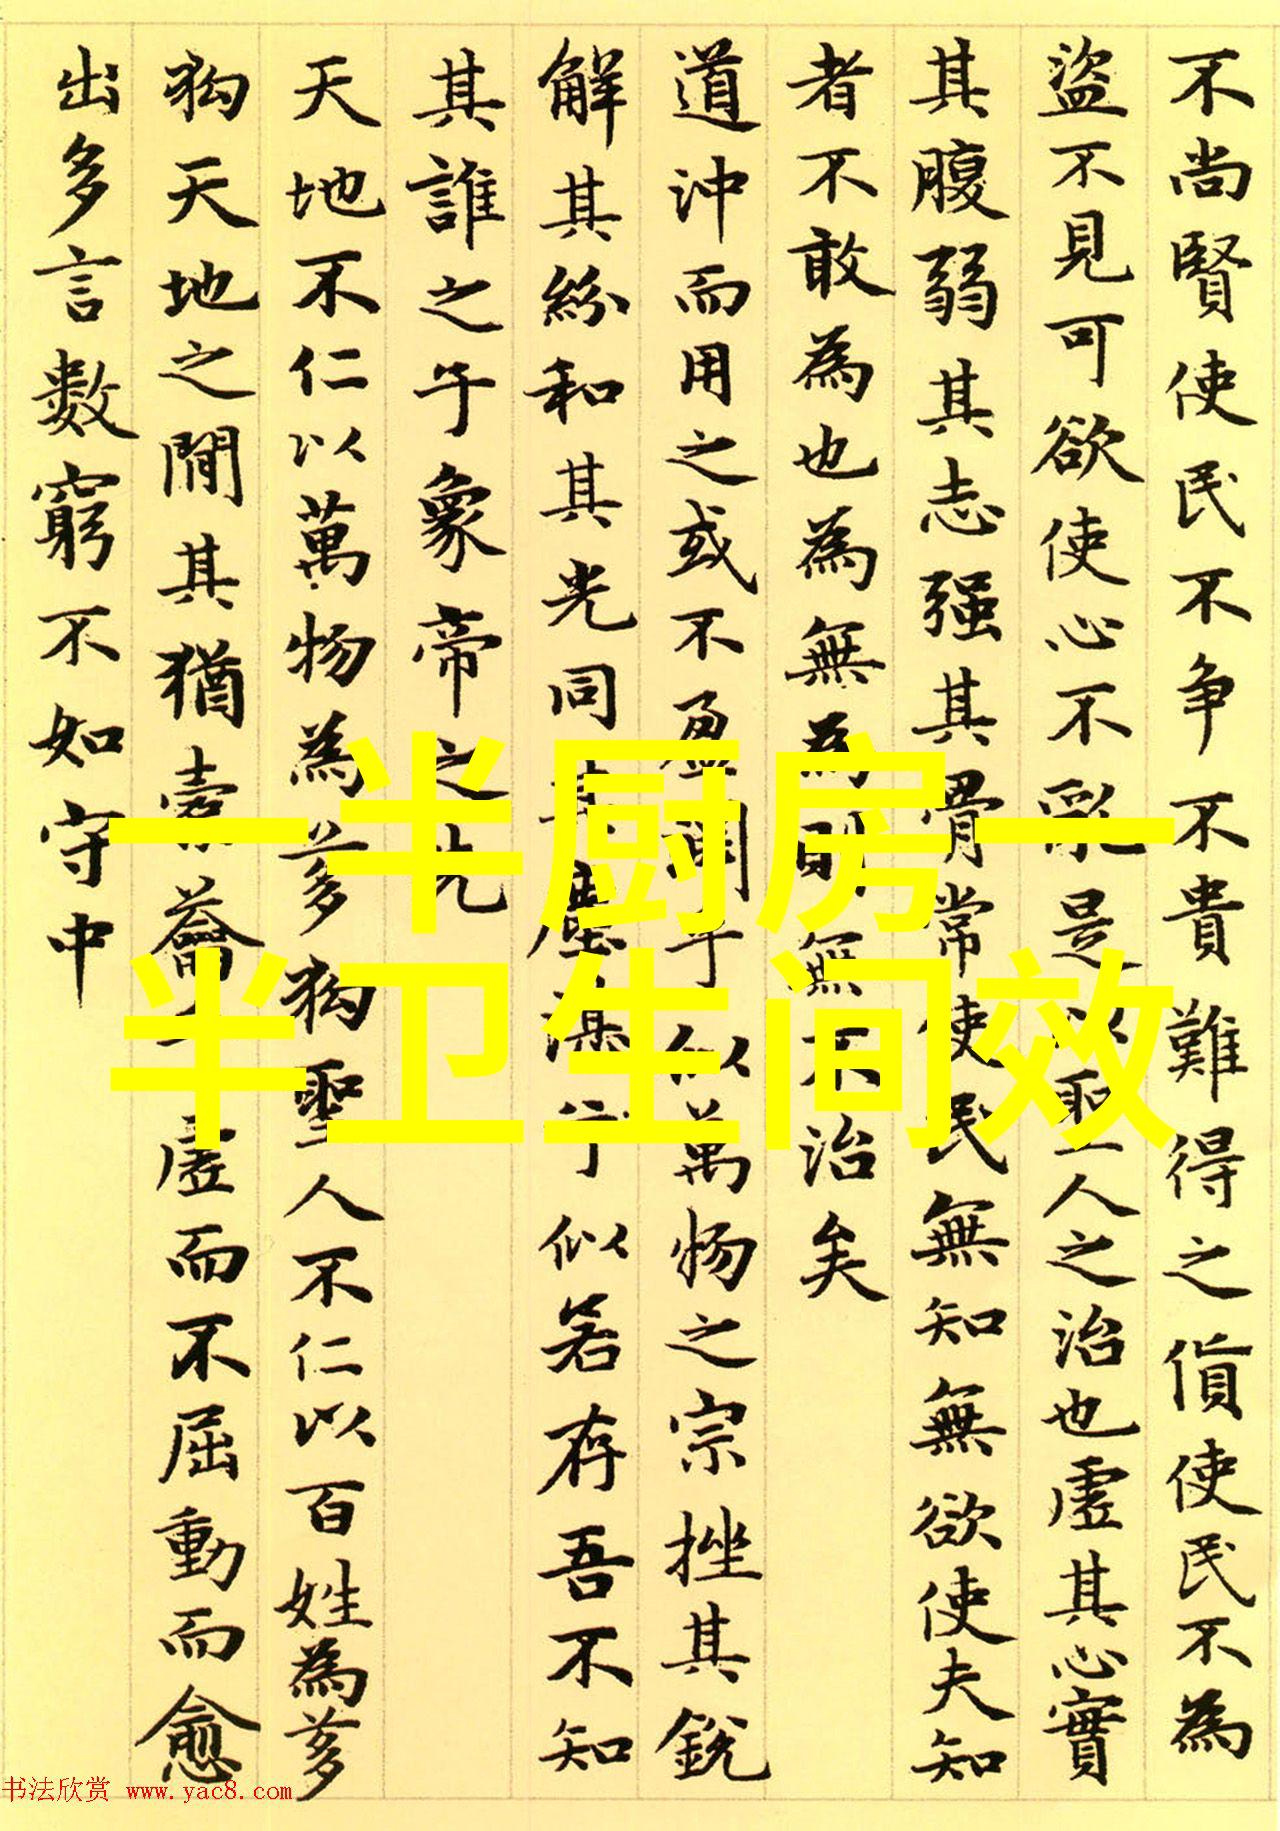 不尚賢使民不争不貴難得之貨使民不為
盜不見可欲使心不亂是以聖人之治也虛其心實
其腹弱其志强其骨常使民無知無欲使夫知
者不敢為也為無為則無不治矣
道沖而用之或不盈淵乎似萬物之宗挫其銳
解其紛和其光同其塵湛兮似若存吾不知
其誰之子象帝之先
天地不仁以萬物為芻狗聖人不仁以百姓為芻
狗天地之間其猶橐籥乎虛而不屈動而愈
出多言數窮不如守中
一半厨房一
半卫生间效
书法欣赏 www.yac8.com